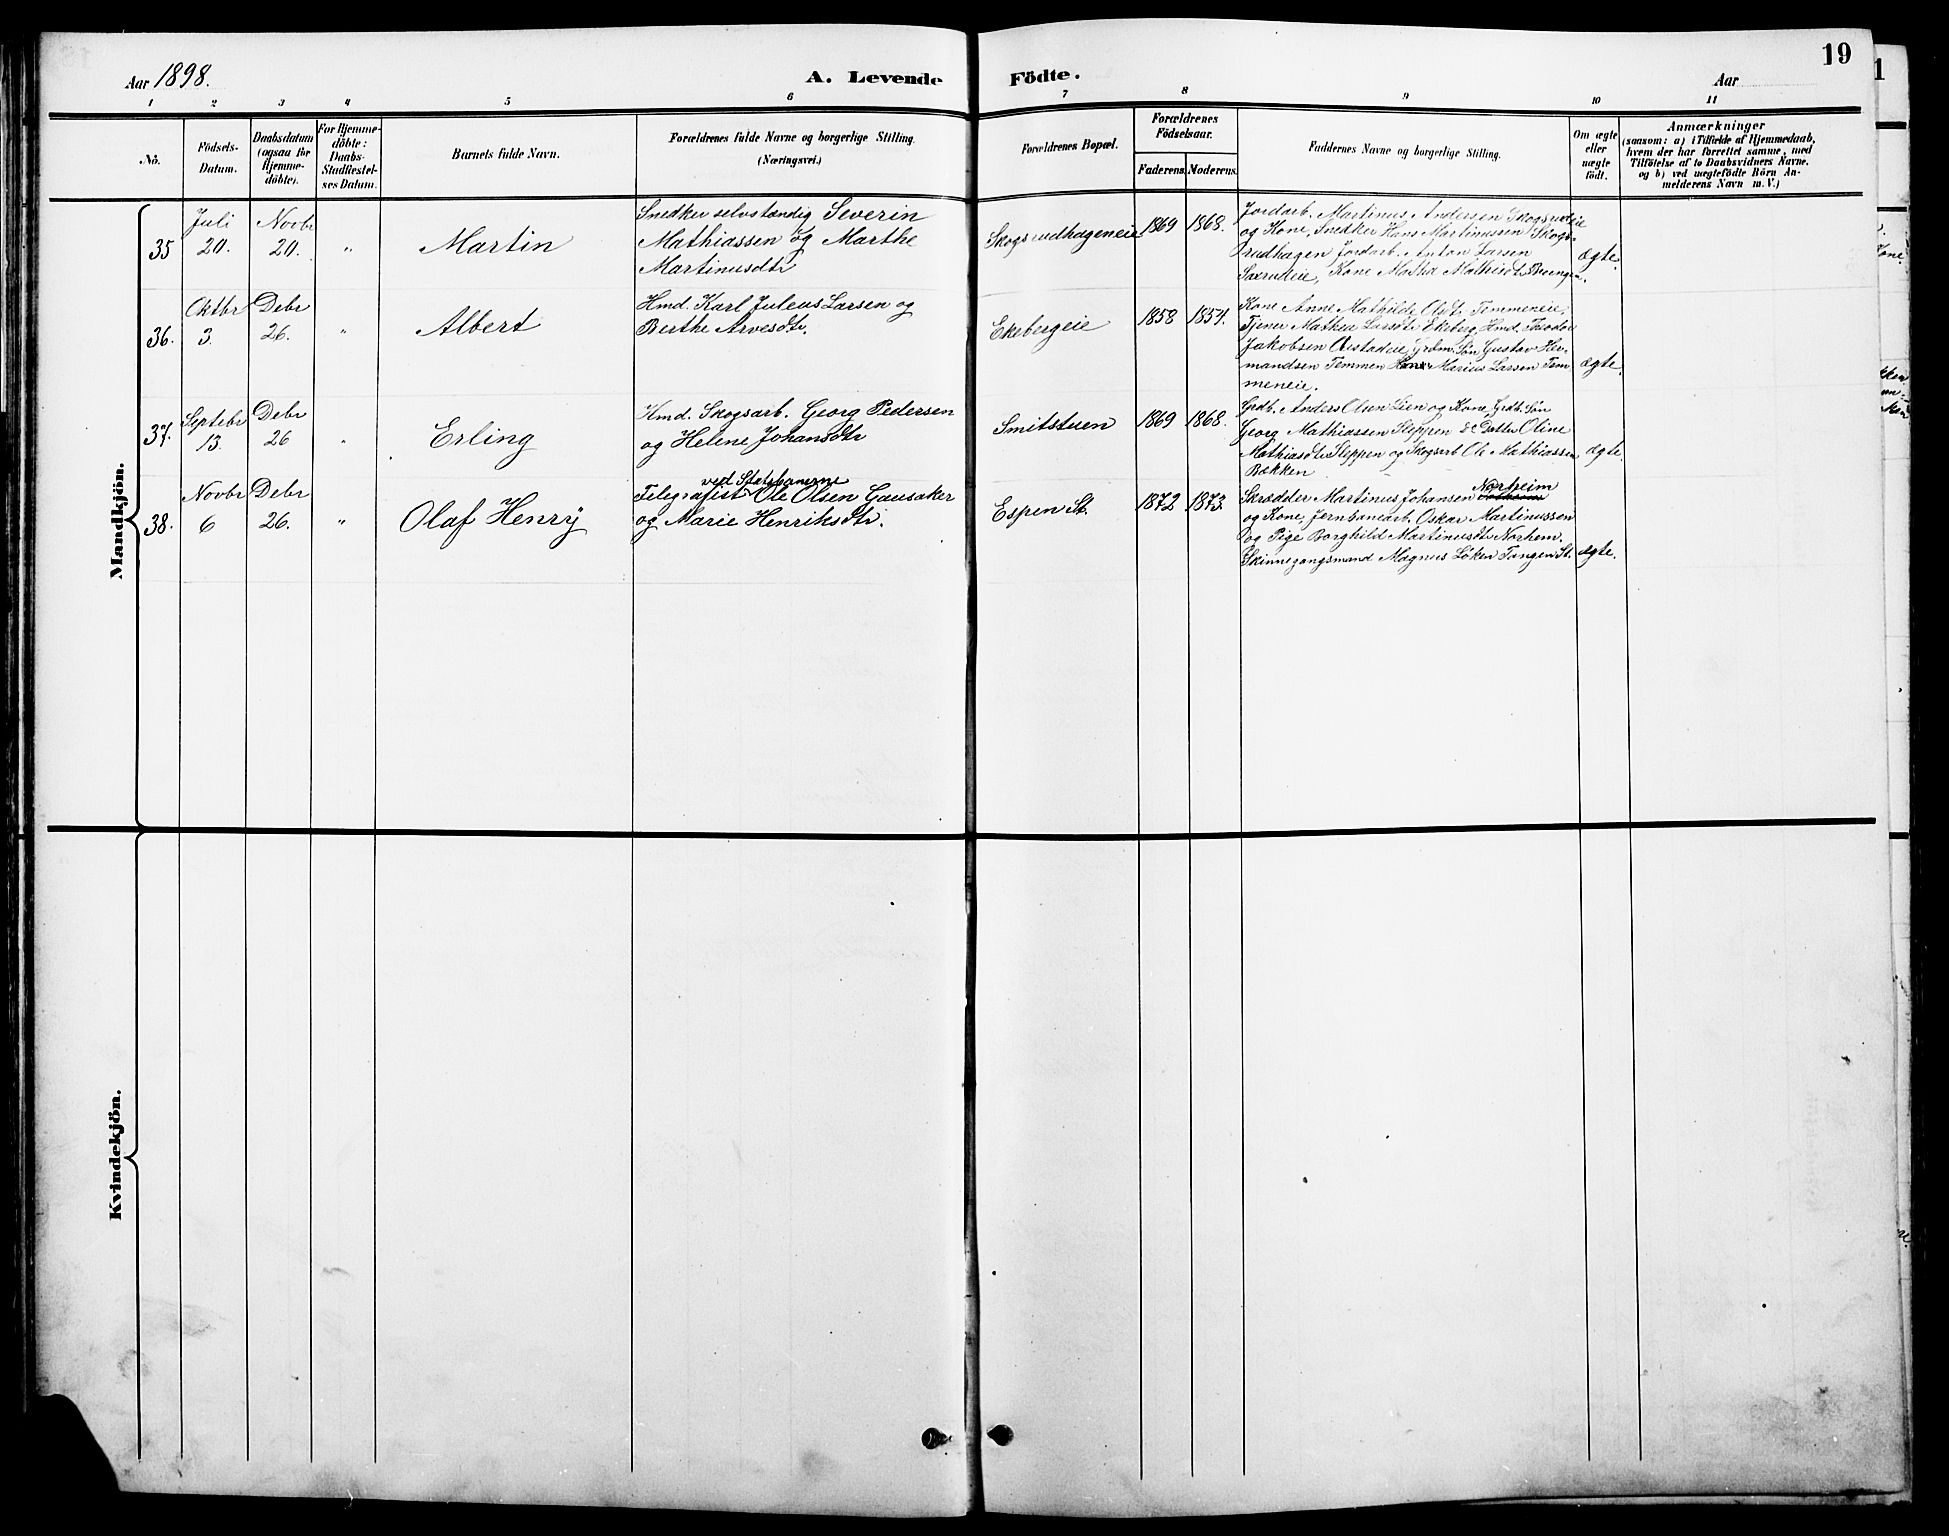 Aar 1898.
A. Levende
Födte.
Aar
19
1
2
3
4
5
6
7
8
9
10
11
No.
Födsels-
Datum.
Daabsdatum
(ogsaa for
Hjemme-
döbte).
For Hjemme-
döbte:
Daabs-
Stadfæstel-
ses Datum.
Barnets fulde Navn.
Forældrenes fulde Navne og borgerlige Stilling.
(Næringsvei.)
Forældrenes Bopæl.
Forældrenes
Födselsaar.
Faderens.
Moderens.
Faddernes Navne og borgerlige Stilling.
Om ægte
eller
uægte
födt.
Anmærkninger
(saasom: a) i Tilfælde af Hjemmedaab,
hvem der har forrettet samme, med
Tilföielse af to Daabsvidners Navne,
og b) ved uægtefödte Börn An-
melderens Navn m. V.)
Mandkjön.
35
Juli
20.
Novbr
20.
"
Martin
Snedker selvstændig Severin
Mathiassen og Marthe
Martinusdtr
Skogsrudhageneie
1869
1868.
Jordarb. Martinus Andersen Skogsrudeie
og Kone, Snedker Hans Martinussen Skogs-
rudhagen Jordarb. Anton Larsen
Saxrudeie, Kone Matha Mathisdtr
ægte.
36.
Oktbr
3.
Debr
26.
"
Albert
Hmd. Karl Juleus Larsen og
Berthe Arvesdtr.
Ekebergeie
1858
1857.
Kone Anne Mathilde Olsdtr Temmeneie,
Tjener Mathea Larsdtr Ekeberg, Hmd. Theodor
Jakobsen Grdm. Søn Gustav Her-
mandsen Temmen Marius Larsen Tem-
meneie.
ægte.
37.
Septebr
13.
Debr
26
"
Erling
Hmd. Skogsarb. Georg Pedersen
og Helene Johansdtr
Smitstuen
1869
1868.
Grdb. Anders Olsen Lien og Kone, Grdb. Søn
Georg Mathiassen Sleppen Datter Oline
Mathiasdtr Sleppen og Skogsarb Ole Mathiassen
Bækken
ægte.
38.
Novbr
6
Debr
26.
"
Olaf Henry
ved Statsbanerne
Telegrafist Ole Olsen Gausaker
og Marie Henriksdtr.
Espen St.
1872
1873.
Norheim
Skrædder Martinus Johansen
og Kone, Jernbanearb. Oskar Martinussen
og Pige Borghild Martinusdtr Norhem.
Skinnegangsmand Magnus Løken Tangen St.
ægte.
Kvindekjön.